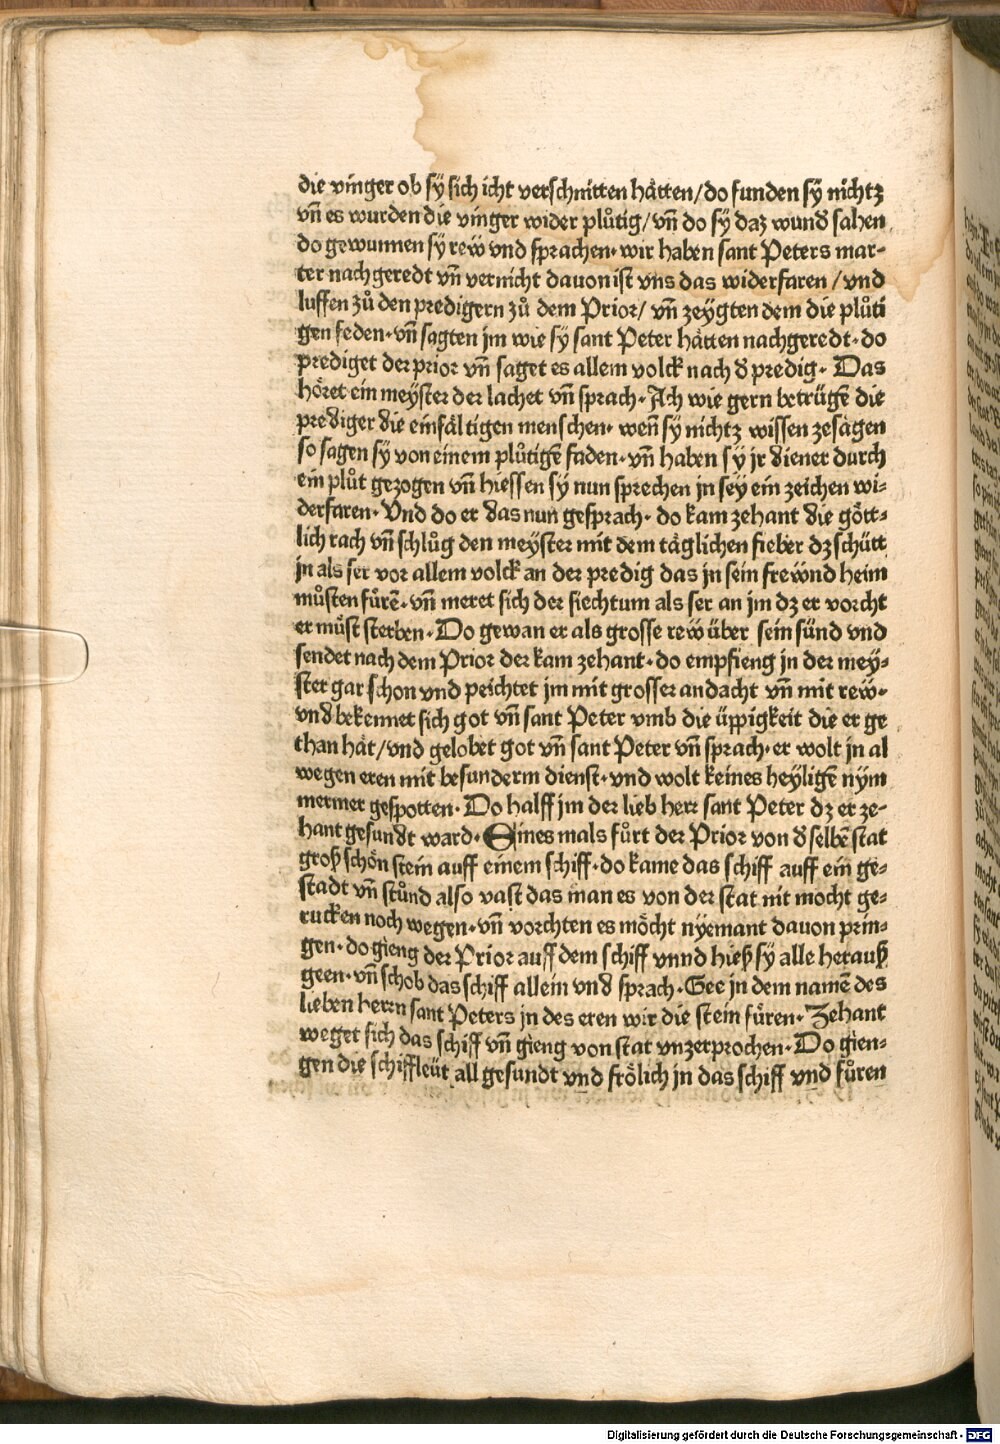 die vinger ob sÿ sich icht verschnitten hätten/do funden sÿ nichtz
vñ es wurden die vinger wider plůtig/vñ do sÿ daz wunđ sahen
do gewunnen sÿ rew̋ vnd sprachen· wir haben sant Peters mar-
ter nachgeredt vñ vernicht dauon ist vns das widerfaren /vnd
luffen zů den predigern zů dem Prior/ vñ zeÿgten dem die plůti
gen feden·vñ sagten jm wie sÿ sant Peter hätten nachgeredt· do
prediget der prior vñ saget es allem volck nach đ predig· Das
höret ein meÿster der lachet vñ sprach·Ach wie gern betrügẽ die
prediger die einfältigen menschen· weñ sÿ nichtz wissen zesagen
so sagen sÿ von einem plůtigẽ faden·vñ haben sÿ jr diener durch
ein plůt gezogen vñ hiessen sÿ nun sprechen jn seÿ ein zeichen wi-
derfaren·Vnd do er das nun gesprach· do kam zehant die gött-
lich rach vñ schlůg den meÿster mit dem täglichen fieber dz schütt
jn als ser vor allem volck an der predig das jn sein frew̋nd heim
můsten fürẽ·vñ meret sich der siechtum als ser an jm dz er vorcht
er müst sterben·Do gewan er als grosse rew̋ über sein sünd vnd
sendet nach dem Prior der kam zehant·do empfieng jn der meÿ-
ster gar schon vnd peichtet jm mit grosser andacht vñ mit rew̋·
vnd bekennet sich got vñ sant Peter vmb die üppigkeit die er ge
than hät/vnd gelobet got vñ sant Peter vñ sprach·er wolt jn al
wegen eren mit besunderm dienst·vnd wolt keines heÿligẽ nÿm
mermer gespotten·Do halff jm der lieb herr sant Peter dz er ze-
hant gesundt ward·Eines mals fůrt der Prior von đselbẽ stat
groß schön stein auff einem schiff·do kame das schiff auff ein ge-
stadt vñ stůnd also vast das man es von der stat nit mocht ge-
rucken noch wegen·vñ vorchten es möcht nÿemant dauon prin-
gen·do gieng der Prior auff dem schiff vnnd hieß sÿ alle herauß
geen·vñ schob das schiff allein vnd sprach·Gee jn dem namẽ des
lieben herrn sant Peters jn des eren wir die stein füren·Zehant
weget sich das schiff vñ gieng von stat vnzerprochen·Do gien-
gen die schiffleüt all gesundt vnd frölich jn das schiff vnd fůren
Digitalisierung gefördert durch die Deutsche Forschungsgemeinschaft - DFG